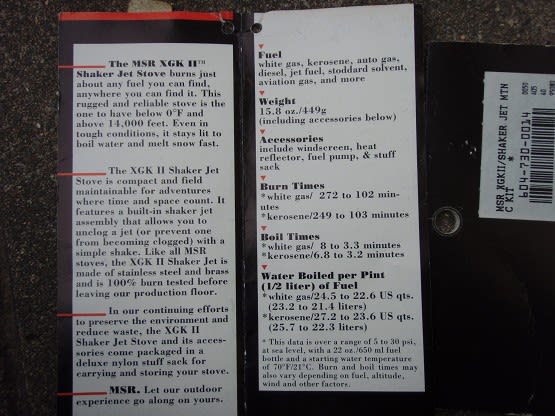 The MSR XGK II™
Shaker Jet Stove burns just
about any fuel you can find,
anywhere you can find it. This
rugged and reliable stove is the
one to have below 0°F and
above 14,000 feet. Even in
tough conditions, it stays lit to
boil water and melt snow fast.
The XGK II Shaker Jet
Stove is compact and field
maintainable for adventures
where time and space count. It
features a built-in shaker jet
assembly that allows you to
unclog a jet (or prevent one
from becoming clogged) with a
simple shake. Like all MSR
stoves, the XGK II Shaker Jet is
made of stainless steel and brass
and is 100% burn tested before
leaving our production floor.
In our continuing efforts
to preserve the environment and
reduce waste, the XGK II
Shaker Jet Stove and its acces-
sories come packaged in a
deluxe nylon stuff sack for
carrying and storing your stove.
MSR. Let our outdoor
experience go along on yours.
Fuel
white gas, kerosene, auto gas,
diesel, jet fuel, stoddard solvent,
aviation gas, and more
Weight
15.8 oz./449g
(including accessories below)
Accessories
include windscreen, heat
reflector, fuel pump, & stuff
sack
Burn Times
*white gas/ 272 to 102 min-
utes
*kerosene/249 to 103 minutes
Boil Times
*white gas/ 8 to 3.3 minutes
*kerosene/6.8 to 3.2 minutes
Water Boiled per Pint
(1/2 liter) of Fuel
*white gas/24.5 to 22.6 US qts.
(23.2 to 21.4 liters)
*kerosene/27.2 to 23.6 US qts.
(25.7 to 22.3 liters)
* This data is over a range of 5 to 30 psi,
at sea level, with a 22 oz./650 ml fuel
bottle and a starting water temperature
of 70°F/21°C. Burn and boil times may
also vary depending on fuel, altitude,
wind and other factors.
MSR XGKII/SHAKER JET MTN
C KIT *
604-730-0014